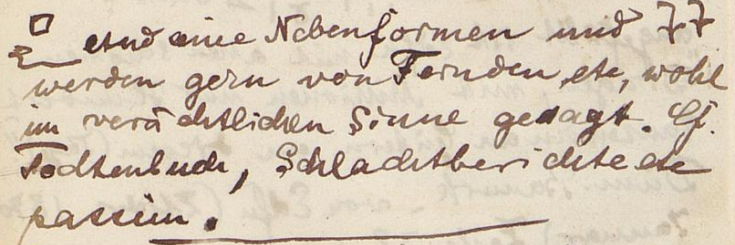 etud eine Nebenformen und
werden gern von Feinden, etc, wohl
im verächtlichen Sinne gesagt. Cf.
Todtenbuch, Schlachtberichte etc
passim.